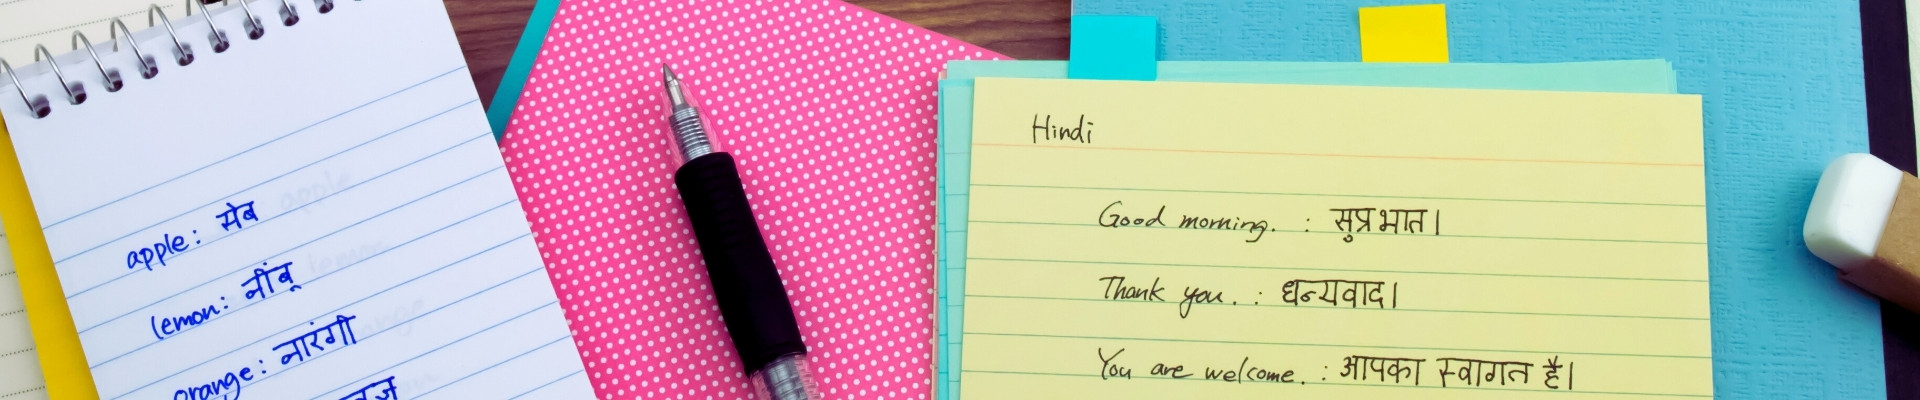 apple: सेब
lemon: नींबू
orange: नारंगी
Hindi
Good morning. : सुप्रभात।
Thank you. : धन्यवाद।
You are welcome. : आपका स्वागत है।